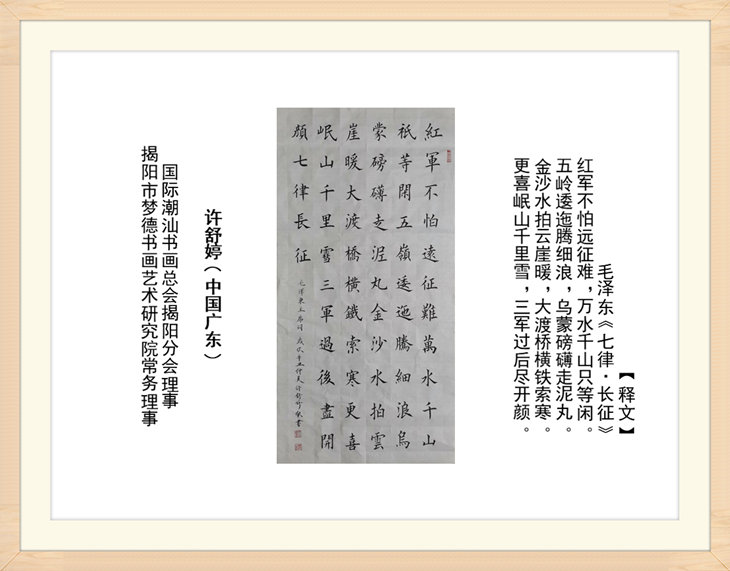 【释文】
毛泽东《七律·长征》
红军不怕远征难，万水千山只等闲。
五岭逶迤腾细浪，乌蒙磅礴走泥丸。
金沙水拍云崖暖，大渡桥横铁索寒。
更喜岷山千里雪，三军过后尽开颜。
紅軍不怕遠征難萬水千山
祇等閑五嶺逶迤騰細浪烏
蒙磅礴走泥丸金沙水拍雲
崖暖大渡橋橫鐵索寒更喜
岷山千里雪三軍過後盡開
顏七律長征
毛澤東主席詞 戊戌年仲夏許舒婷書
许舒婷（中国广东）
国际潮汕书画总会揭阳分会理事
揭阳市梦德书画艺术研究院常务理事